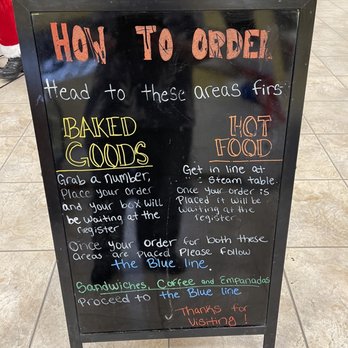 HOW TO ORDER
Head to these areas firs
BAKED
GOODS
Grab a number,
Place your order
and your box will
be waiting at the
register
HOT
FOOD
Get in line at
steam table.
Once your order is
Placed it will be
waiting at the
register.
Once your order for both these
areas are placed Please follow
the Blue line.
Sandwiches, Coffee and Empanadas
Proceed to the Blue line
Thanks for
Visiting!